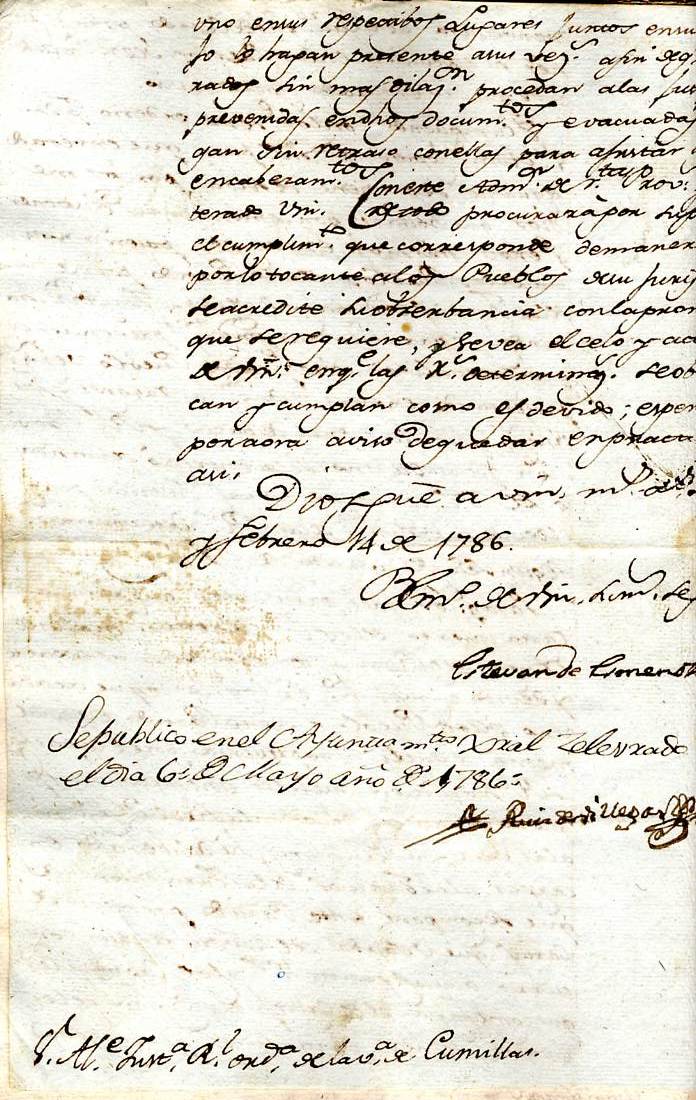 uno ensus respectibos Lugares Juntos ensu
lo hagan presente asus vez.s afin deq
rados sin mas dilaz.n procedan alas
prevenidas endhos docum.tos y evacuadas
gan sin retraso conellas para ajustar
encabezam.tos Coneste Adm.or de r.tas Prov.
terado Vm. de todo procurará por su
el cumplim.to que corresponde demaner
porlo tocante alos Pueblos desu Juris
seacredite su obserbancia conlapron
que serequiere, y sevea el celo y ac
de Vm. enq.e las R.s determinaz.s seob
can y cumplan como es devido; esper
poraora aviso dequedar enpracti
asi.
Dios gue. a Vm. m.s a.s
y febrero 14 de 1786.
BLm.o de Vm. su m.r seg
Estevan de Esmenota
Sepublico enel Ayuntam.to Xral Zelevrado
el dia 6 de Mayo año de 1786
S.r Al.e Just.a R.l ord.a de la v.a de Cumillas.